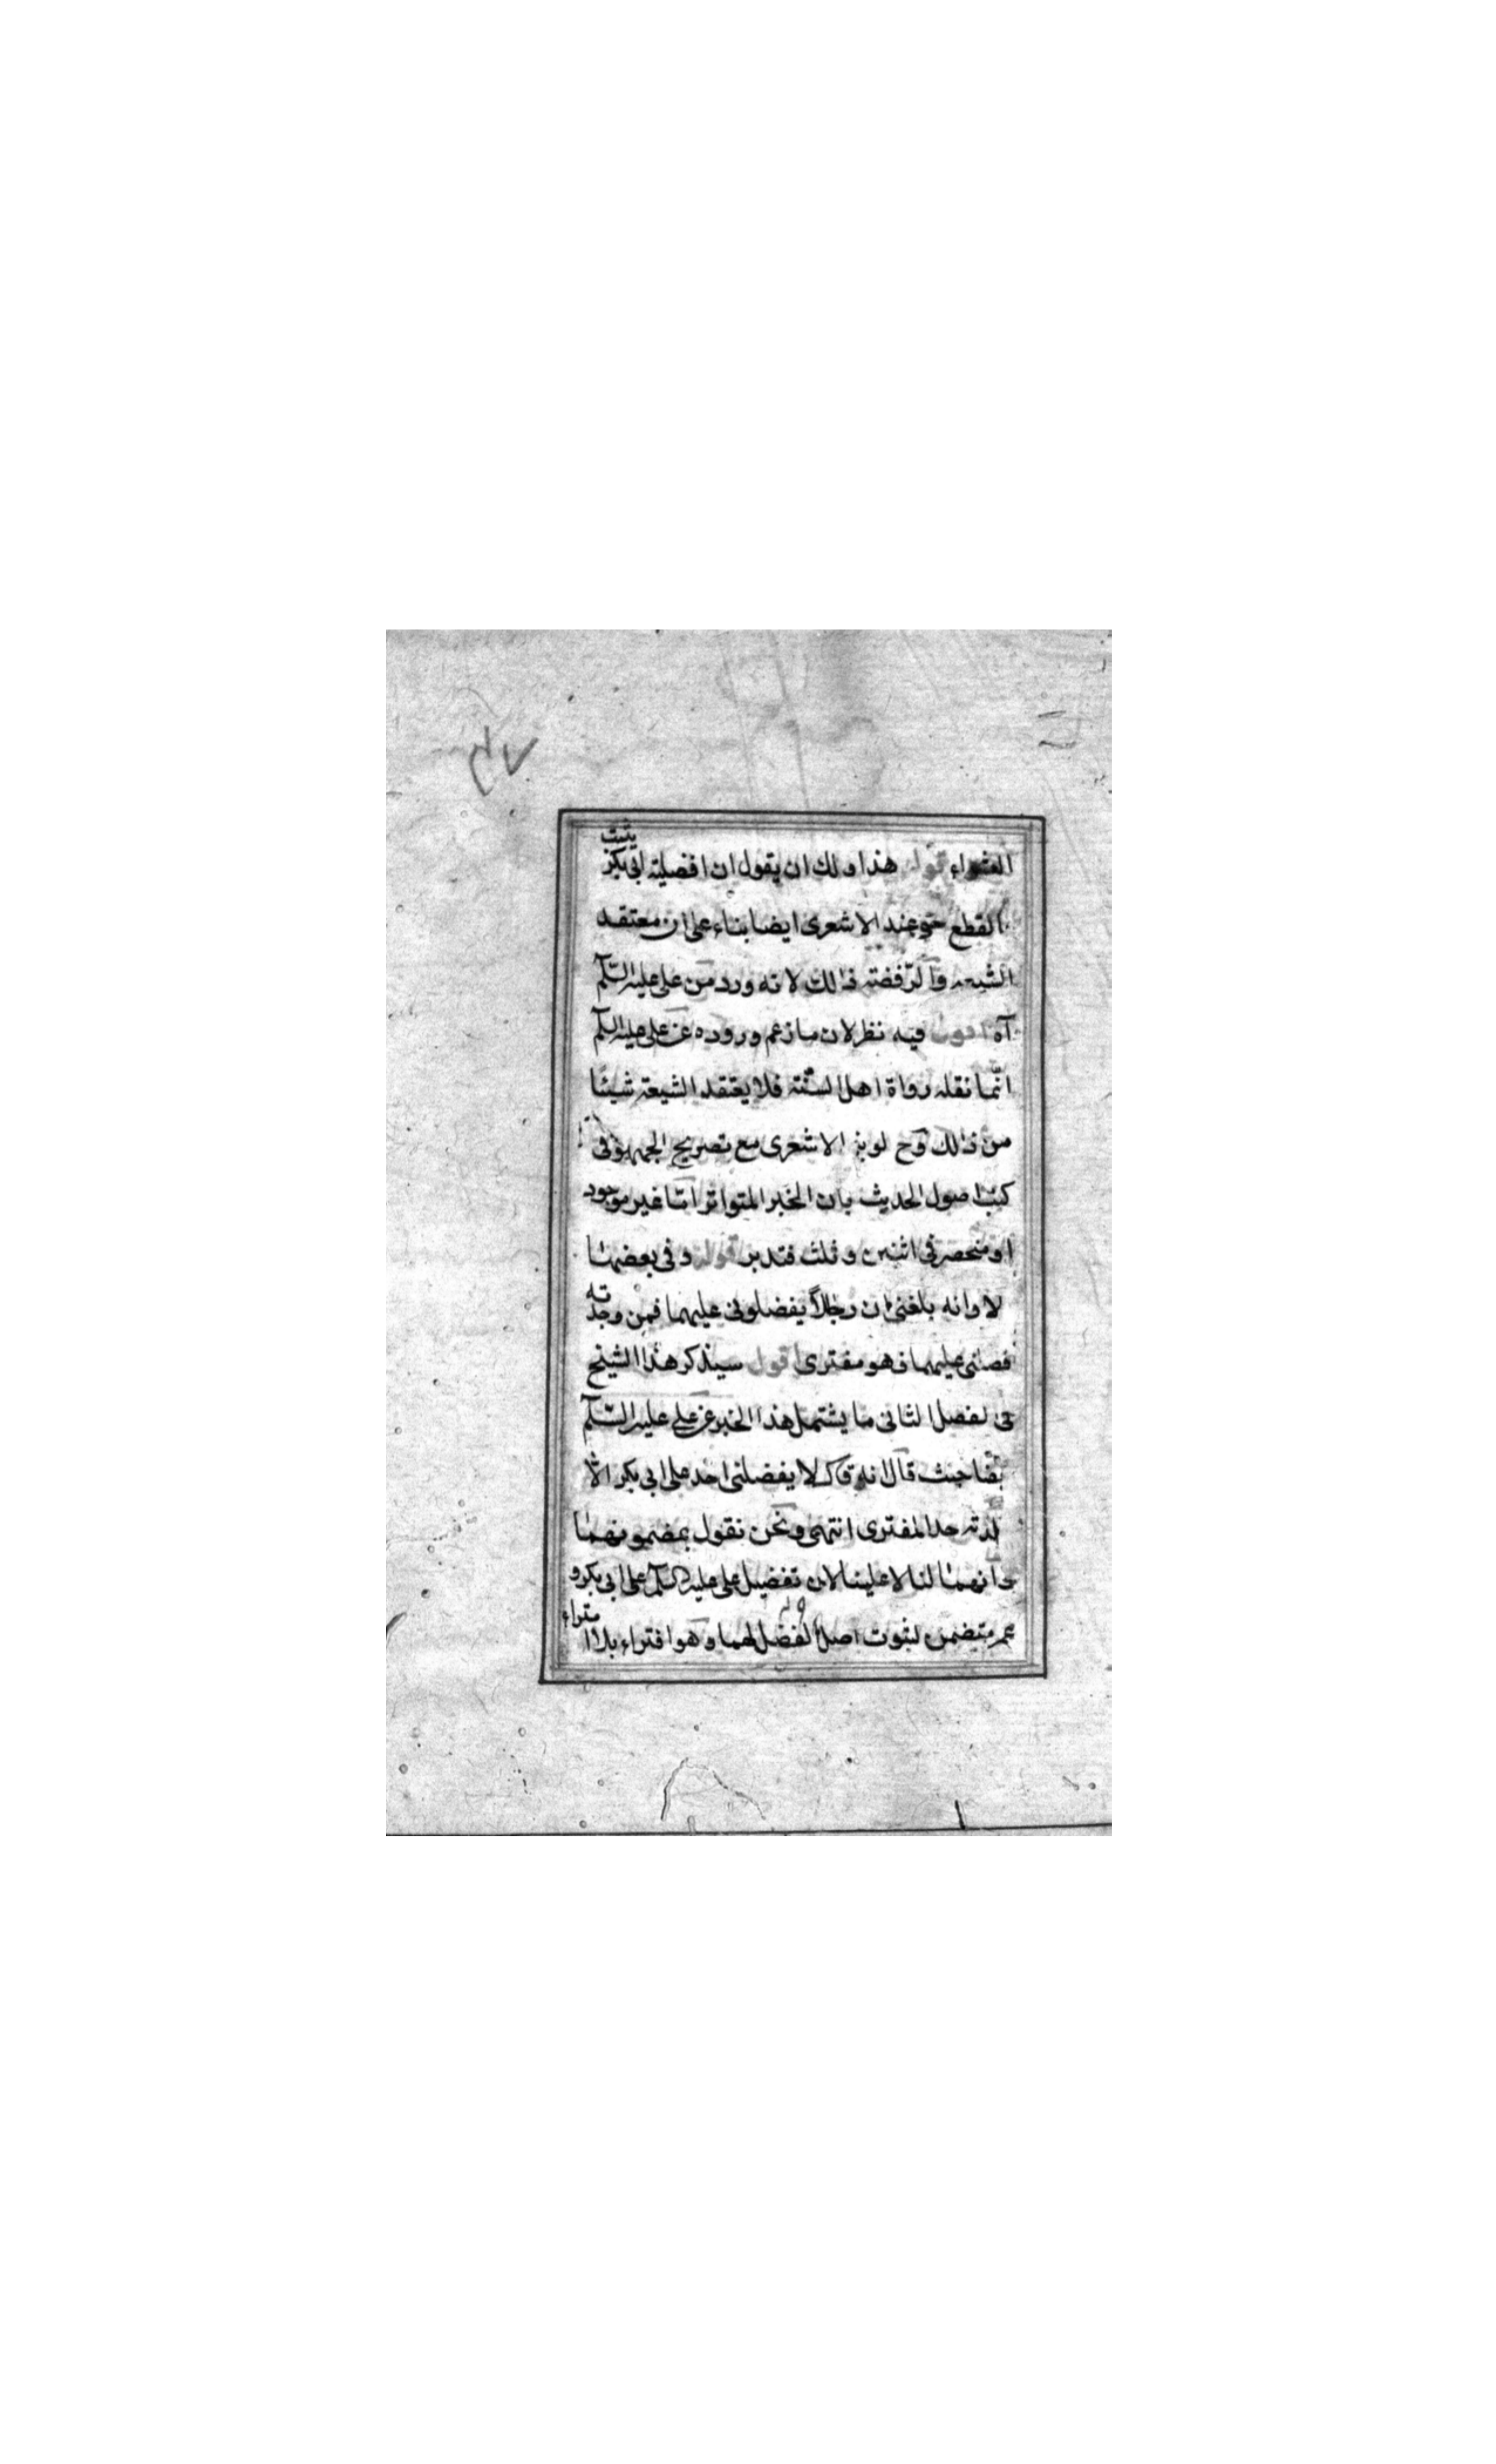 العشواء قوله هذا ولك ان يقول ان افضلية ابي بكر يثبت
بالقطع حتى عند الاشعرى ايضا بناء على ان معتقد
الشيعه والرفضة ذلك لانه ورد من على عليه السّلم
آه اقول فيه نظر لان ما زعم وروده عن على عليه السلم
انّما نقله رواة اهل السنّة فلا يعتقد الشيعة شيئا
من ذلك وح الاشعرى مع تصريح الجمهور فى
كتب اصول الحديث بان الخبر المتواتر امّا غير موجود
او منحصر فى اثنين وثلث فتدبر قوله وفى بعضها
الا وانه بلغنى ان رجالا يفضلونى عليهما فمن وجدته
فضلنى عليهما فهو مفترى اقول سيذكر هذا الشيخ
فى الفصل الثانى ما يشتمل هذا الخبر عن على عليه السّلم
ايضا حيث قال انه قال لا يفضلنى احد على ابى بكر الّا
جلدته حد المفترى انتهى ونحن نقول بمضمونهما
وانهما لنا لا علينا لان تفضيل على عليه السلم على ابى بكر و
عمر متضمن لثبوت اصل الفضل لهما وهو افتراء بلا امتراء